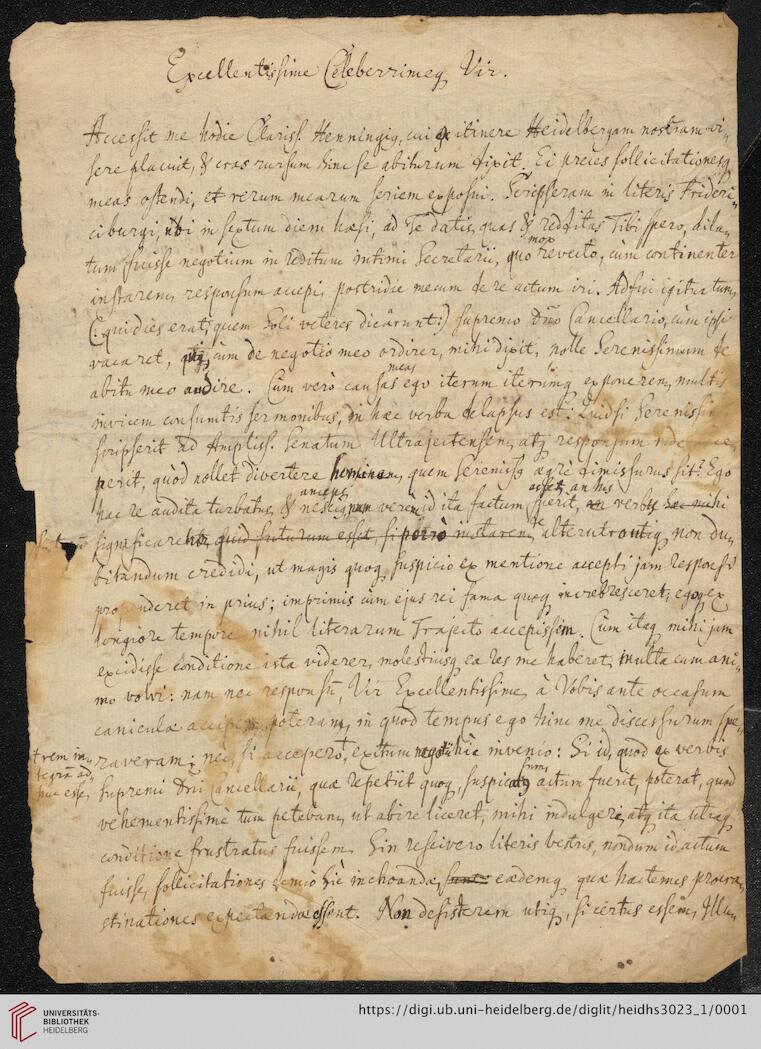 Excellentissime Celeberrimeq Vir.
Accessit me hodie Clariss. Henningiq, cui ex itinere Heidelbergam nostram vi-
sere placuit, & cras rursum hinc se abiturum dixit. Ei preces sollicitationesq
meas ostendi, et rerum mearum seriem exposui. Scripseram in literis Frideri-
ciburgi, ubi in septum diem haesi, ad Te datis, quas & redditas Tibi spero, dila-
tum fuisse negotium in reditum intimi Secretarii, quo mox reverso, cùm continenter
instarem, responsum accepi, postridie mecum de re actum iri. Adfui igitur tum,
(: qui dies erat, quem Soli veteres dicârunt:) supremo Dno Cancellario, cùm ipsi
vacaret, cùm de negotio meo ordirer, mihi dixit, nolle Serenissimum de
abitu meo audire. Cùm verò causas meas ego iterum iterumq exponerem, multis
invicem consumtis sermonibus, in haec verba delapsus est: Quid si Serenissimus
scripserit ad Ampliss. Senatum Ultrajectensem, atq responsum
perit, quòd nollet divertere hominem, quem Serenissq aegrè dimissurus sit? Ego
hac re audita turbatus, & anceps verùm id ita factum fuerit, an his verbis mihi
significaret quid futurum esset, si porrò instarem, alterutro utiq non du-
bitandum credidi, ut magis quoq suspicio ex mentione accepti jam responsi
propenderet in prius; imprimis cùm ejus rei fama quoq increbresceret, egoq ex
longiore tempore nihil literarum Trajecto accepissem. Cùm itaq mihi jam
excidisse conditione ista viderer, molestiusq ea res me haberet, multa cum ani-
mo volvi: nam nec responsum, Vir Excellentissime, à Vobis ante occasum
caniculae accipere poteram, in quod tempus ego hinc me discessurum spe-
raveram; nec, si accepero, exitum hîc invenio: Si id, quod ex verbis
trem in-
tegrâ ad
huc esse,
supremi Dni Cancellarii, quae repetiit quoq, suspicatq sum, actum fuerit, poterat, quòd
vehementissimè tum petebam, ut abire liceret, mihi indulgere, atq ita utraq
conditione frustratus fuissem. Sin rescivero literis vestris, nondum id actum
fuisse, sollicitationes denuò hîc inchoandae, eaedemq quae hactenus procra-
stinationes expectandae essent. Non desisterem utiq, si certus essem, Illu-
UNIVERSITÄTS-
BIBLIOTHEK
HEIDELBERG
https://digi.ub.uni-heidelberg.de/diglit/heidhs3023_1/0001